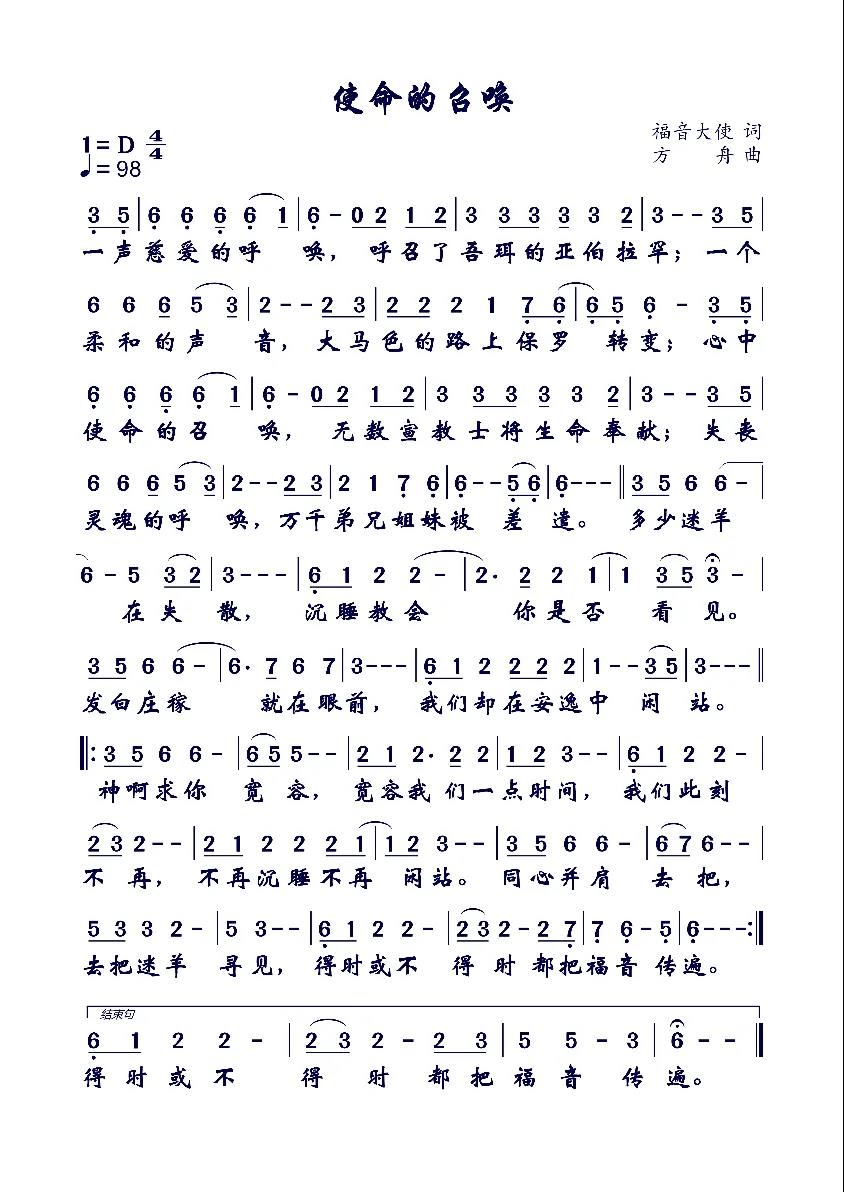 使命的召唤
1=D 4/4
♩=98
福音大使 词
方舟 曲
3 5|6 6 6 6 1|6-0 2 1 2|3 3 3 3 3 2|3--3 5|
一声慈爱的呼 唤，呼召了吾珥的亚伯拉罕；一个
6 6 6 5 3|2--2 3|2 2 2 1 7 6|6 5 6-3 5|
柔和的声 音，大马色的路上保罗 转变；心中
6 6 6 6 1|6-0 2 1 2|3 3 3 3 3 2|3--3 5|
使命的召 唤，无数宣教士将生命奉献；失丧
6 6 6 5 3|2--2 3|2 1 7 6|6--5 6|6---||3 5 6 6-
灵魂的呼 唤，万千弟兄姐妹被 差 遣。 多少迷羊
6-5 3 2|3---|6 1 2 2-|2· 2 2 1|1 3 5 3-|
在失 散， 沉睡教会 你是否 看见。
3 5 6 6-|6· 7 6 7|3---|6 1 2 2 2 2|1--3 5|3---||
发白庄稼 就在眼前， 我们却在安逸中 闲 站。
||:3 5 6 6-|6 5 5--|2 1 2· 2 2|1 2 3--|6 1 2 2-|
神啊求你 宽 容， 宽容我 们一点时间， 我们此刻
2 3 2--|2 1 2 2 2 1|1 2 3--|3 5 6 6-|6 7 6--|
不 再， 不再沉睡不再 闲站。 同心并肩 去 把，
5 3 3 2-|5 3--|6 1 2 2-|2 3 2-2 7|7 6-5|6---:||
去把迷羊 寻见，得时或不 得 时 都把福音 传遍。
结束句
6 1 2 2-|2 3 2-2 3|5 5-3|6--||
得 时 或 不 得 时 都 把 福 音 传 遍。